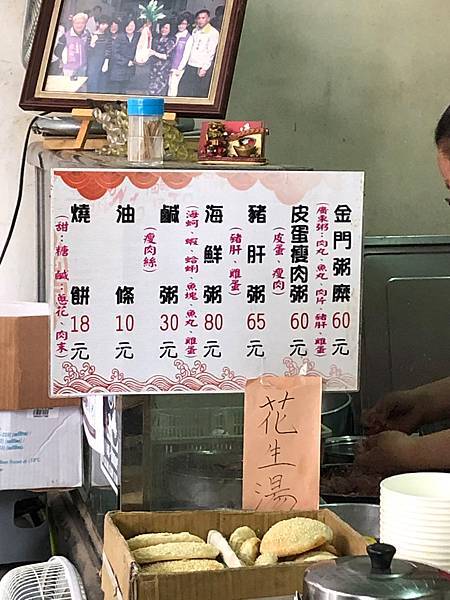 金門粥糜60元
(廣東粥:肉丸、魚丸、肉片、豬肝、雞蛋)
皮蛋瘦肉粥60元
(皮蛋、瘦肉)
豬肝粥65元
(豬肝、雞蛋)
海鮮粥80元
(海蚵、蝦、蛤蜊、魚塊、魚丸、雞蛋)
鹹粥30元
(瘦肉絲)
油條10元
燒餅18元
(甜:糖 鹹:蔥花、肉末)
花生湯